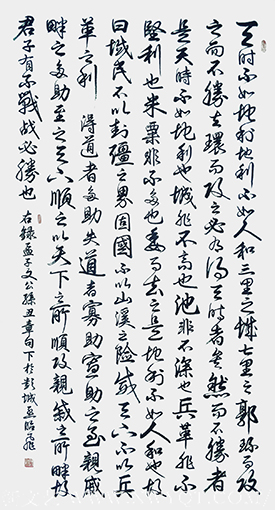 天时不如地利地利不如人和三里之城七里之郭环而攻
之而不勝夫環而攻之必有得天时者矣然而不勝者
是天時不如地利也城非不高也池非不深也兵革非不
堅利也米粟非不多也委而去之是地利不如人和也故
曰域民不以封疆之界固國不以山溪之险威天下不以兵
革之利 得道者多助失道者寡助寡助之至親戚
畔之多助之至天下順之以天下之所順攻親戚之所畔故
君子有不戰战必勝也 右錄孟子文公孫丑章句下於彭城